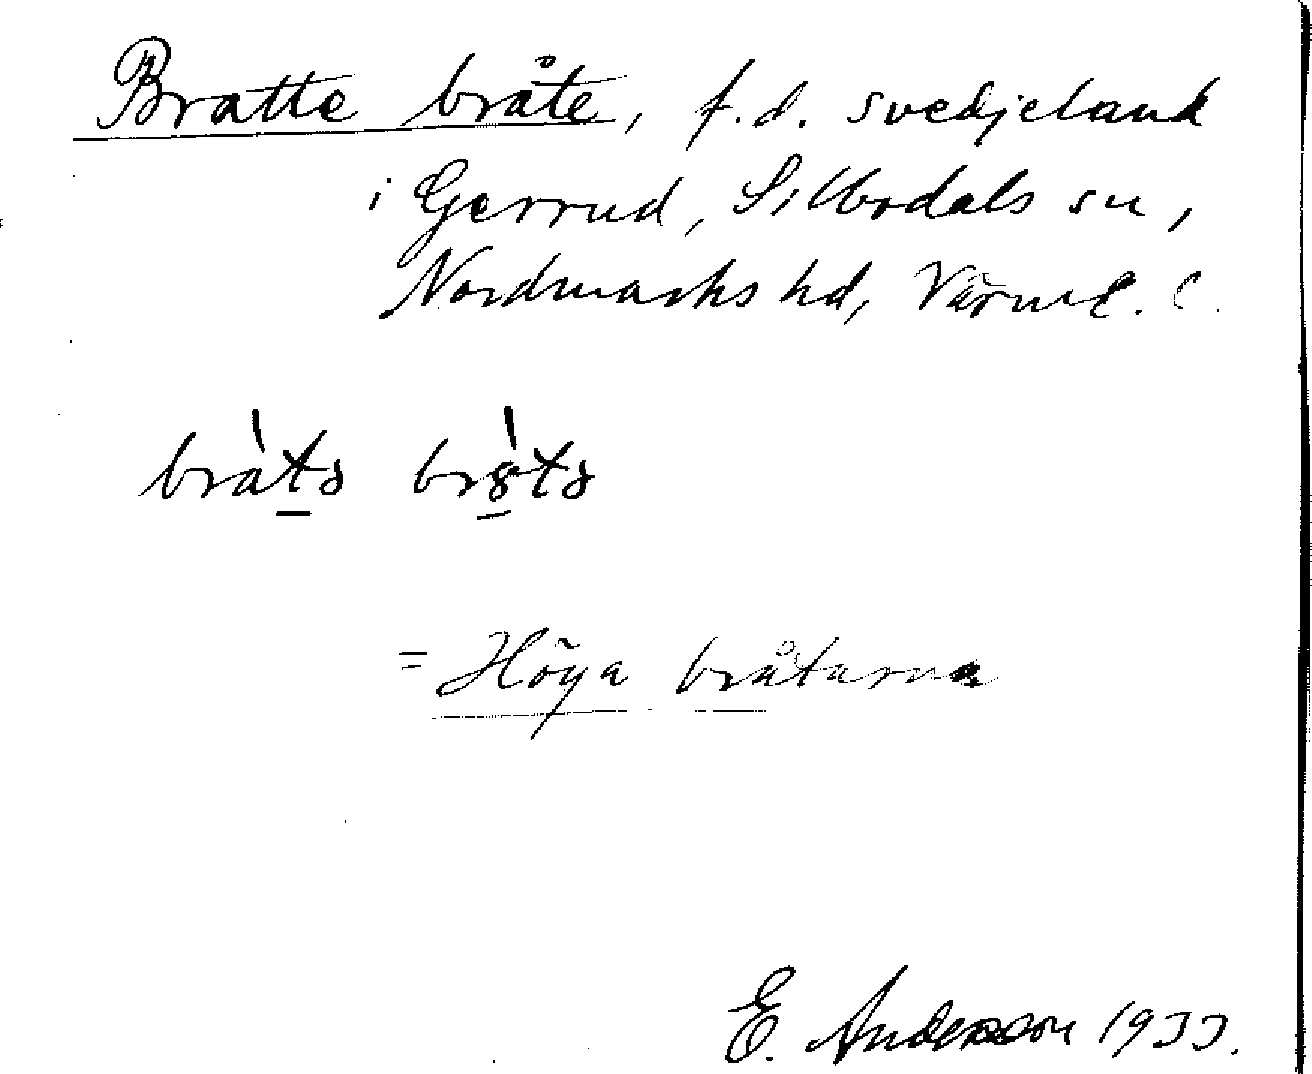 Bratte bråte, f.d. svedjeland
i Gerrud, Silbodals sn,
Nordmarks hd, Värml.
= Höga bråtarna
E. Andersson 1933.